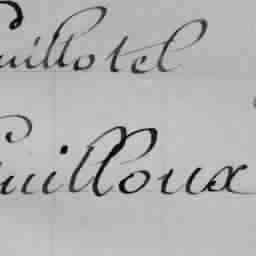 uillotel
uilloux